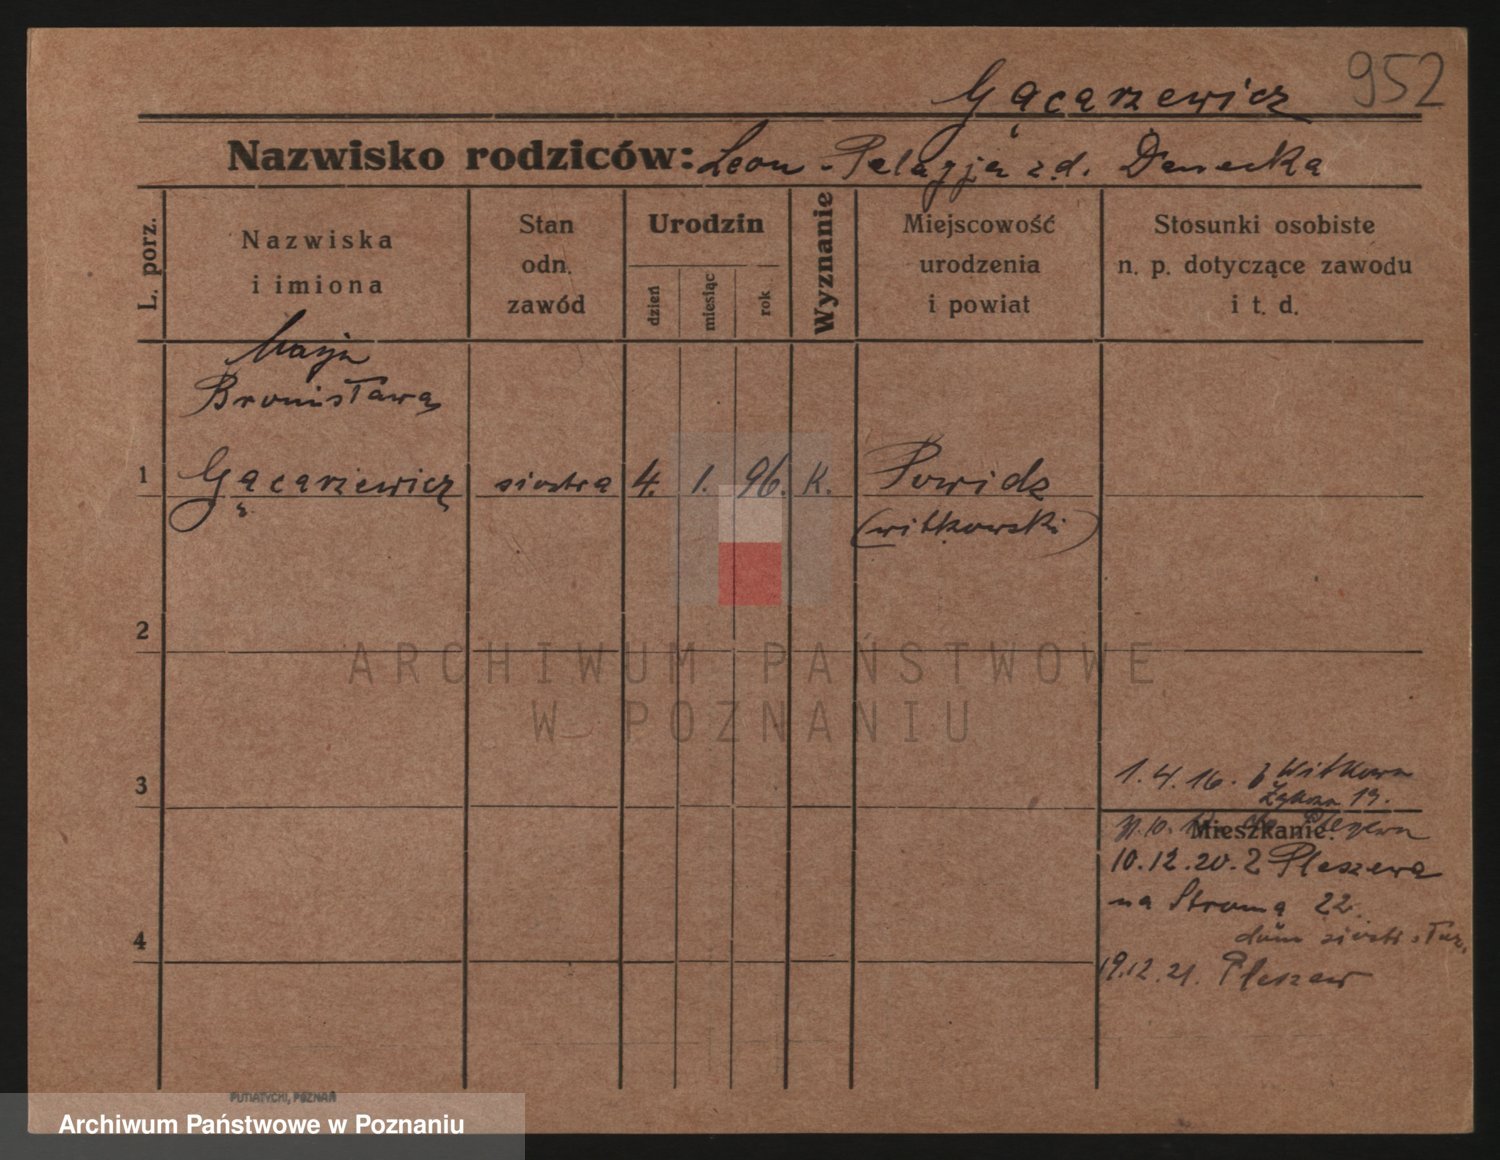 952
Gącarzewicz
Nazwisko rodziców: Leon - Pelagja z d. Danecka
L. porz.
Nazwiska
i imiona
Stan
odn.
zawód
Urodzin
dzień
miesiąc
rok
Wyznanie
Miejscowość
urodzenia
i powiat
Stosunki osobiste
n. p. dotyczące zawodu
i t. d.
Marja
Bronisława
1 Gącarzewicz siostra 4. 1. 96. K. Powidz
(witkowski)
2
ARCHIWUM PAŃSTWOWE
W POZNANIU
3
1.4.16. z Witkowa
19.
Mieszkanie:
10.12.20. z Pleszewa
na Stromą 22
dom siostr
4
19.12.21. Pleszew
PUTIATYCKI, POZNAŃ
Archiwum Państwowe w Poznaniu